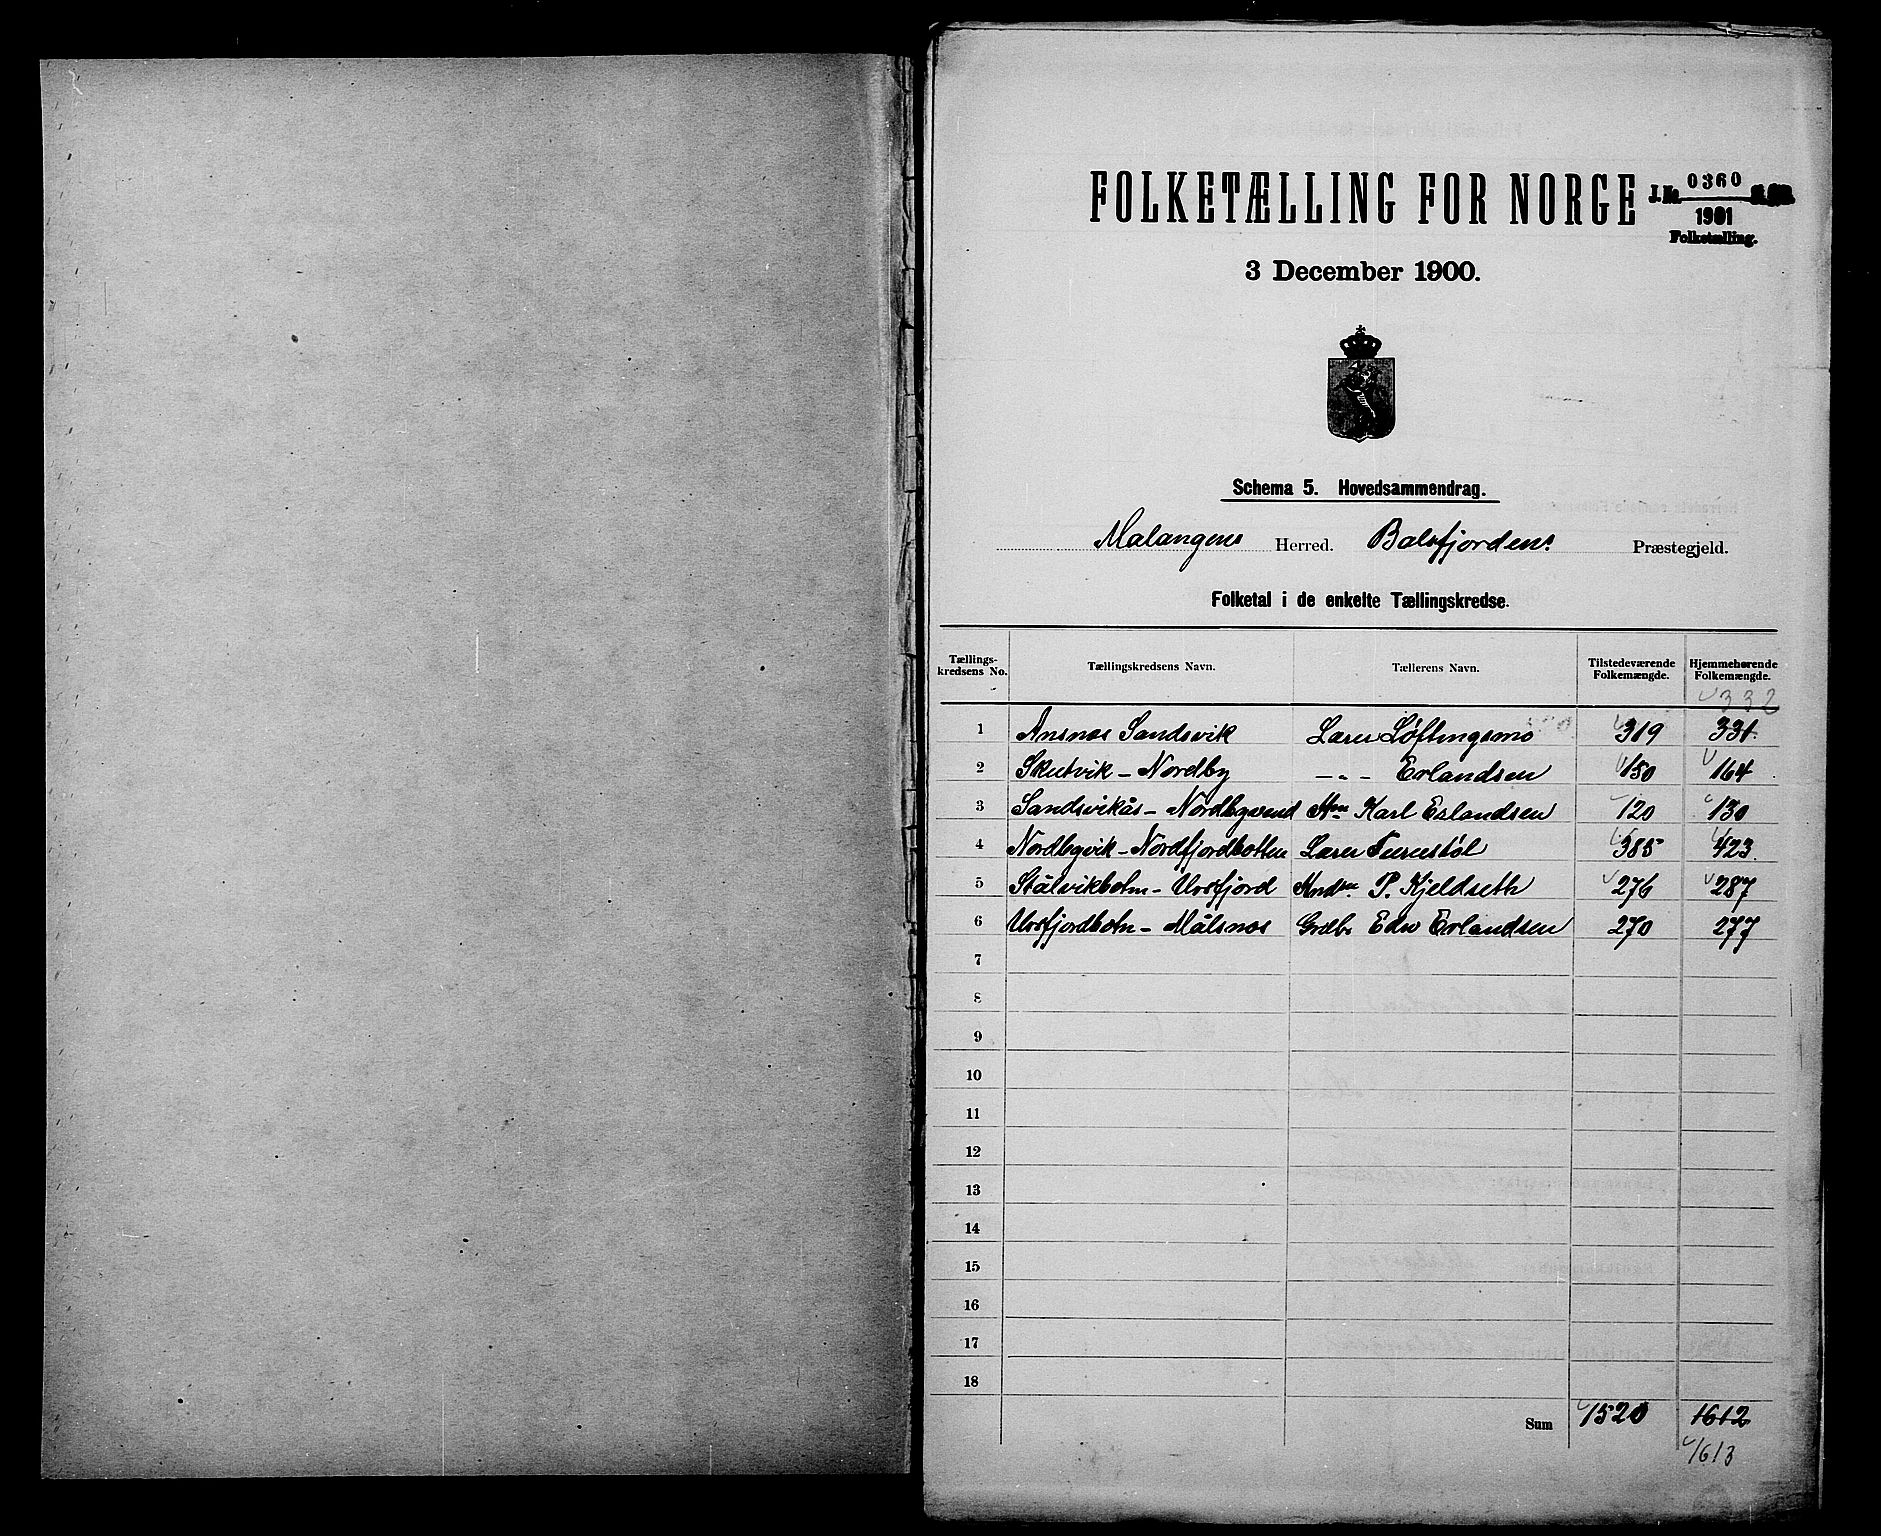 FOLKETÆLLING FOR NORGE
J. No. 0360
1901
Folketælling.
3 December 1900.
Schema 5. Hovedsammendrag.
Malangens Herred. Balsfjordens Præstegjeld.
Folketal i de enkelte Tællingskredse.
Tællingskredsens No. Tællingskredsens Navn. Tællerens Navn. Tilstedeværende Folkemængde. Hjemmehørende Folkemængde.
332
1 Ansnæs Sandsvik Lærer Løftingsmo 319 331
2 Skutvik - Nordby -„- Erlandsen 150 164
3 Sandsvikås - Nordbyvend Karl Erlandsen 120 130
4 Nordbyvik - Nordfjordbotten Lærer Furustøl 385 423
5 Stålvikbotn - Ursfjord P. Kjeldseth 276 287
6 Ursfjordbotn - Målsnæs Grdbr Edw Erlandsen 270 277
7
8
9
10
11
12
13
14
15
16
17
18
Sum 1520 1612
1613